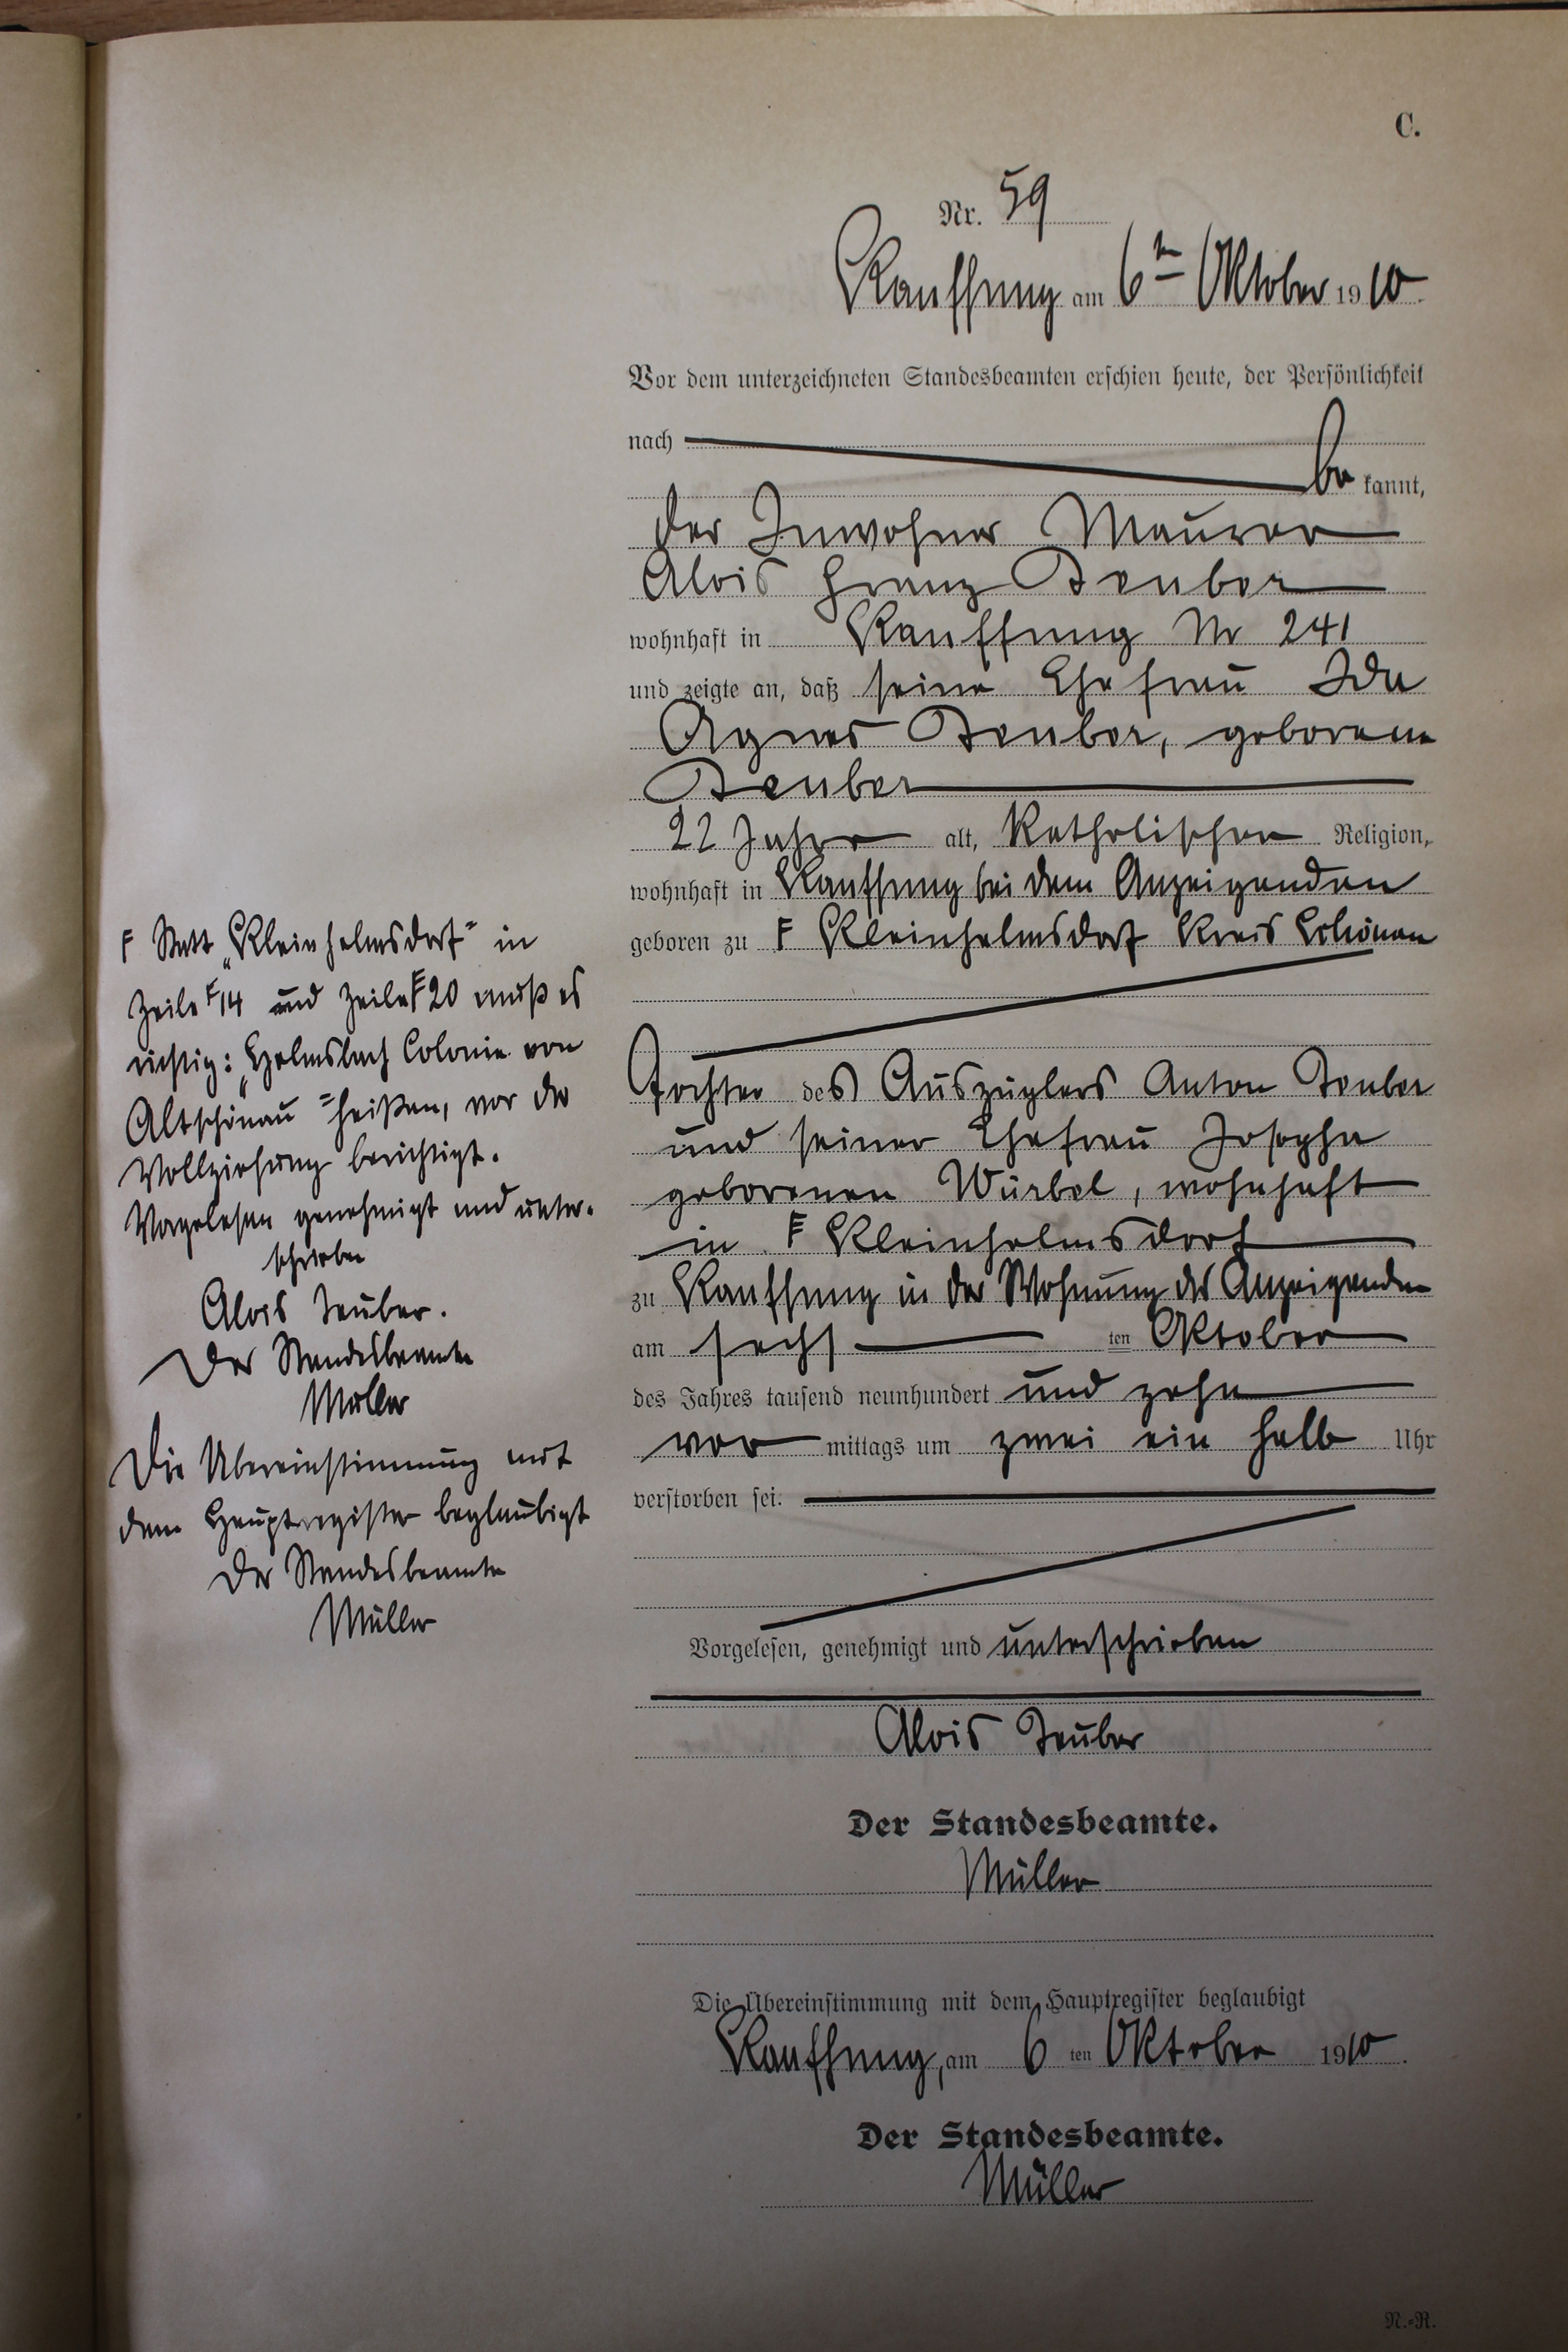 C.
Nr. 59
Kauffung am 6ten Oktober 1910.
Vor dem unterzeichneten Standesbeamten erschien heute, der Persönlichkeit
nach
be kannt,
der Inwohner Maurer
Alois Franz Teuber
wohnhaft in Kauffung Nr 241
und zeigte an, daß seine Ehefrau Ida
Agnes Teuber, geborene
Teuber
22 Jahre alt, Katholischen Religion,
wohnhaft in Kauffung bei dem Anzeigenden
geboren zu F Kleinhelmsdorf Kreis Schönau
Tochter des Auszüglers Anton Teuber
und seiner Ehefrau Josepha
geborenen Würbel, wohnhaft
in F Kleinhelmsdorf
zu Kauffung in der Wohnung des Anzeigenden
am sechs ten Oktober
des Jahres tausend neunhundert und zehn
vor mittags um zwei ein halb Uhr
verstorben sei.
Vorgelesen, genehmigt und unterschrieben
Alois Teuber
Der Standesbeamte.
Müller
Die Übereinstimmung mit dem Hauptregister beglaubigt
Kauffung, am 6 ten Oktober 1910.
Der Standesbeamte.
Müller
N.-R.
F Statt „Kleinhelmsdorf" in
Zeile F 14 und Zeile F 20 muß es
richtig: „Helmsbach Colonie von
Altschönau" heißen, vor der
Vollziehung berichtigt.
Vorgelesen genehmigt und unter-
schrieben
Alois Teuber.
Der Standesbeamte
Müller
Die Übereinstimmung mit
dem Hauptregister beglaubigt
Der Standesbeamte
Müller